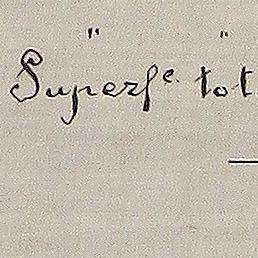 " "
Superf^e. tot